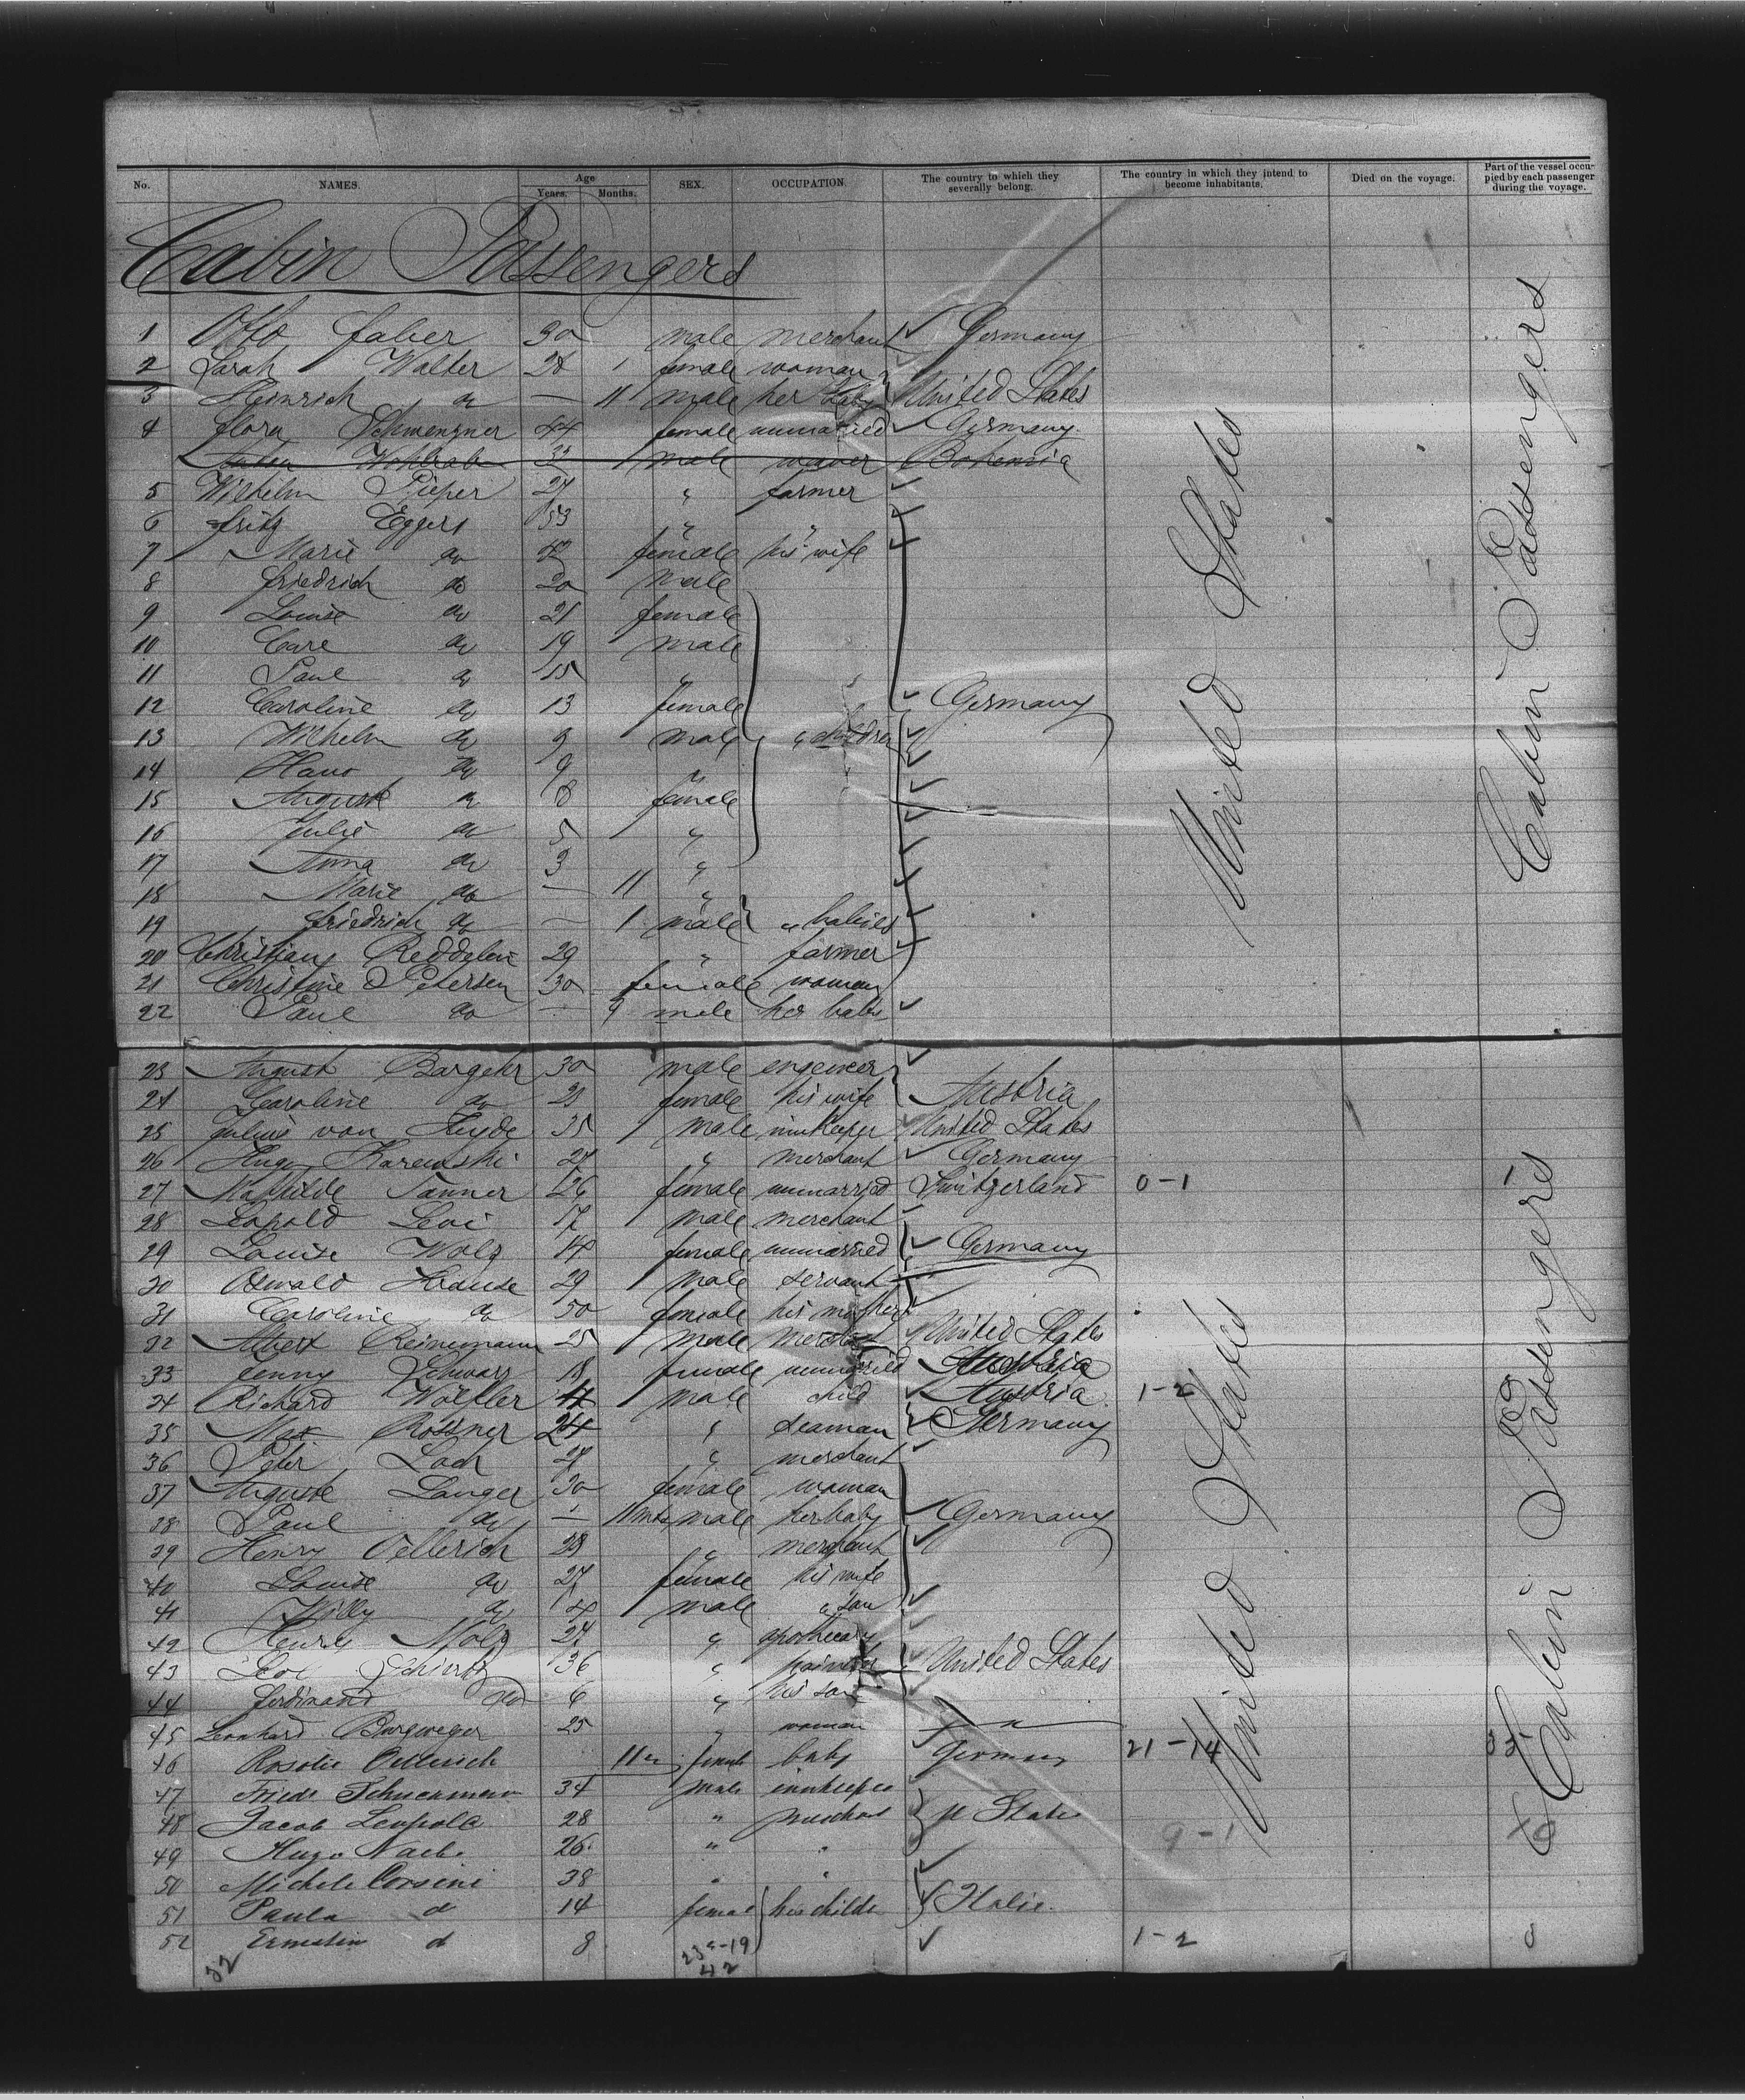 No. NAMES. Age Years. Months. SEX. OCCUPATION. The country to which they severally belong. The country in which they intend to become inhabitants. Died on the voyage. Part of the vessel occupied by each passenger during the voyage.
Cabin Passengers
1 Otto Faber 30 male merchant Germany
2 Sarah Walter 28 female woman
3 Heinrich do — 11 male her baby United States
4 Flora Schwenzner 44 female unmarried Germany
Wohlrab 32 male Bohemia
5 Wilhelm Pieper 27 " farmer
6 Fritz Eggers 53 " "
7 Marie do 42 female his wife
8 Friedrich do 20 male
9 Louise do 21 female
10 Carl do 19 male
11 Paul do 15 "
12 Caroline do 13 female Germany
13 Wilhelm do 9 male " children
14 Hans do 9 "
15 Auguste do 8 female
16 Julie do 5 "
17 Anna do 3 "
18 Marie do — 11 "
19 Friedrich do — 1 male " babies
20 Christian Reddelin 29 " farmer
21 Christine Petersen 30 female woman
22 Paul do — 9 male her baby
23 August Bargehr 30 male engeneer
24 Caroline do 21 female his wife Austria
25 Julius von Heyde 35 male innkeeper United States
26 Hugo Karewski 27 " merchant Germany
27 Mathilde Tanner 26 female unmarried Switzerland 0-1 1
28 Leopold Levi 17 male merchant
29 Louise Wolz 14 female unmarried Germany
30 Oswald Krause 29 male servant
31 Caroline do 50 female his mother
32 Albert Reinemann 25 male merchant United States
33 Jenny Schwarz 18 female unmarried Austria
34 Richard Wölfler 4 male child Austria 1-2
35 Max Rössner 24 " seaman Germany
36 Peter Loch 27 " merchant
37 Auguste Langer 30 female woman
38 Paul do — 11 mts male her baby Germany
39 Henry Oellerich 28 " merchant
40 Louise do 27 female his wife
41 Willy do 4 male " son
42 Henry Molz 27 " apothecary
43 Leo 36 " United States
44 Ferdinand do 6 " his son
45 Leonhard Burgweger 25 " woman
46 Rosalie Oellerich 11 female baby Germany 21-14 35
47 Friedr Schuermann 34 male innkeeper
48 Jacob Leupold 28 " U States
49 Hugo 26 " " 9-1 10
50 Michele Corsini 38 " "
51 Paula d 14 female his childr Italie
52 Ernestin d 8 1-2 0
52
23-19
42
United States
United States
Cabin Passengers
Cabin Passengers